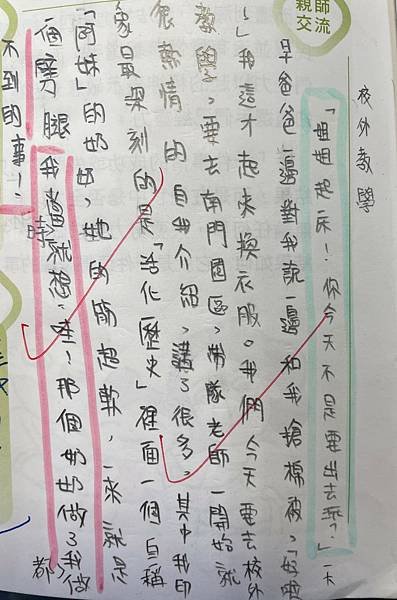 親師交流
校外教學
「姐姐起床！你今天不是要出去乎？」一大
早爸爸一邊對我說一邊和我搶棉被，「好啦
！」我這才起來換衣服。我們今天要去校外
教學，要去南門園區，帶隊老師一開始就
很熱情的自我介紹，講了很多，其中我印
象最深刻的是「活化歷史」裡面一個自稱
「阿妹」的奶奶，她的筋超軟，一來就是
個劈腿，我當時就想：哇！那個奶奶做了我做都
不到的事！